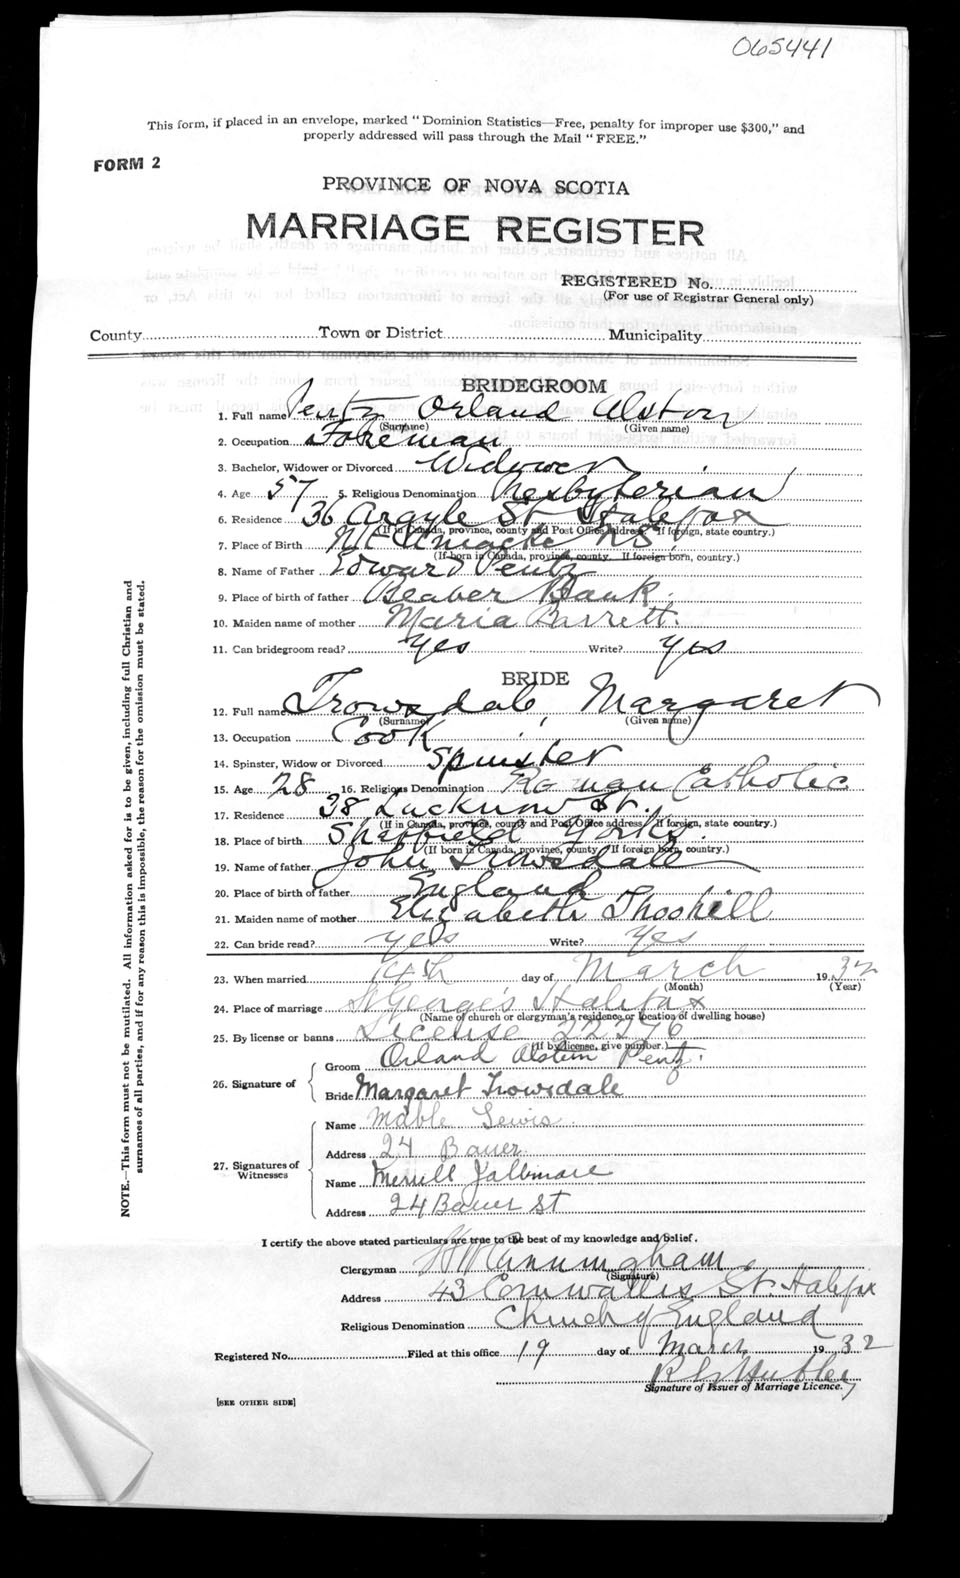 065441
This form, if placed in an envelope, marked "Dominion Statistics—Free, penalty for improper use $300," and
properly addressed will pass through the Mail "FREE."
FORM 2
PROVINCE OF NOVA SCOTIA
MARRIAGE REGISTER
REGISTERED No.
(For use of Registrar General only)
County Town or District Municipality
BRIDEGROOM
1. Full name Pentz Orland Alston
(Surname) (Given name)
2. Occupation Foreman
3. Bachelor, Widower or Divorced Widower
4. Age 57 5. Religious Denomination Presbyterian
6. Residence 36 Argyle St Halifax
(If in Canada, province, county and Post Office address. If foreign, state country.)
7. Place of Birth Mt Uniacke N S
(If born in Canada, province, county. If foreign born, country.)
8. Name of Father Edward Pentz
9. Place of birth of father Beaver Bank.
10. Maiden name of mother Maria Barrett.
11. Can bridegroom read? Yes Write? Yes
BRIDE
12. Full name Trowsdale, Margaret
(Surname) (Given name)
13. Occupation Cook
14. Spinster, Widow or Divorced Spinster
15. Age 28 16. Religious Denomination Roman Catholic
17. Residence 38 Lucknow St.
(If in Canada, province, county and Post Office address. If foreign, state country.)
18. Place of birth Sheffield Yorks.
(If born in Canada, province, county. If foreign born, country.)
19. Name of father John Trowsdale
20. Place of birth of father England
21. Maiden name of mother Elizabeth
22. Can bride read? yes Write? Yes
23. When married 14th day of March 1932
(Month) (Year)
24. Place of marriage St George's Halifax
(Name of church or clergyman's residence, or location of dwelling house)
25. By license or banns License 22276
(If by license, give number.)
26. Signature of
Groom Orland Pentz.
Bride Margaret Trowsdale
27. Signatures of Witnesses
Name Mable Lewis
Address 24 Bauer
Name Merrill
Address 24 Bauer St
I certify the above stated particulars are true to the best of my knowledge and belief.
Clergyman Cunningham
(Signature)
Address 43 Cornwallis St. Halifax
Religious Denomination Church of England
Registered No. Filed at this office 19 day of March 1932
Signature of Issuer of Marriage Licence.
[SEE OTHER SIDE]
NOTE.—This form must not be mutilated. All information asked for is to be given, including full Christian and
surnames of all parties, and if for any reason this is impossible, the reason for the omission must be stated.